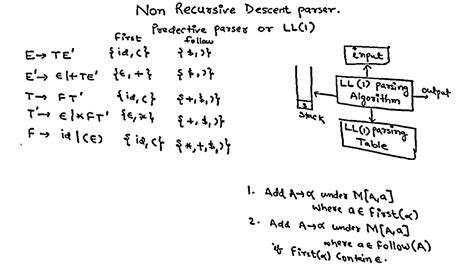 Non Recursive Descent parser.
Predective parser or LL(1)
First follow
E→ TE' {id, (} {$, )}
E'→ ε|+TE' {ε, +} {$, )}
T→ FT' {id, (} {+, $, )}
T'→ ε|*FT' {ε, *} {+, $, )}
F→ id|(E) {id, (} {*, +, $, )}
input
LL(1) parsing
Algorithm
output
$
stack
LL(1) parsing
Table
1. Add A→α under M[A,a]
where a∈ First(α)
2. Add A→α under M[A,a]
where a∈ Follow(A)
if First(α) contain ε.